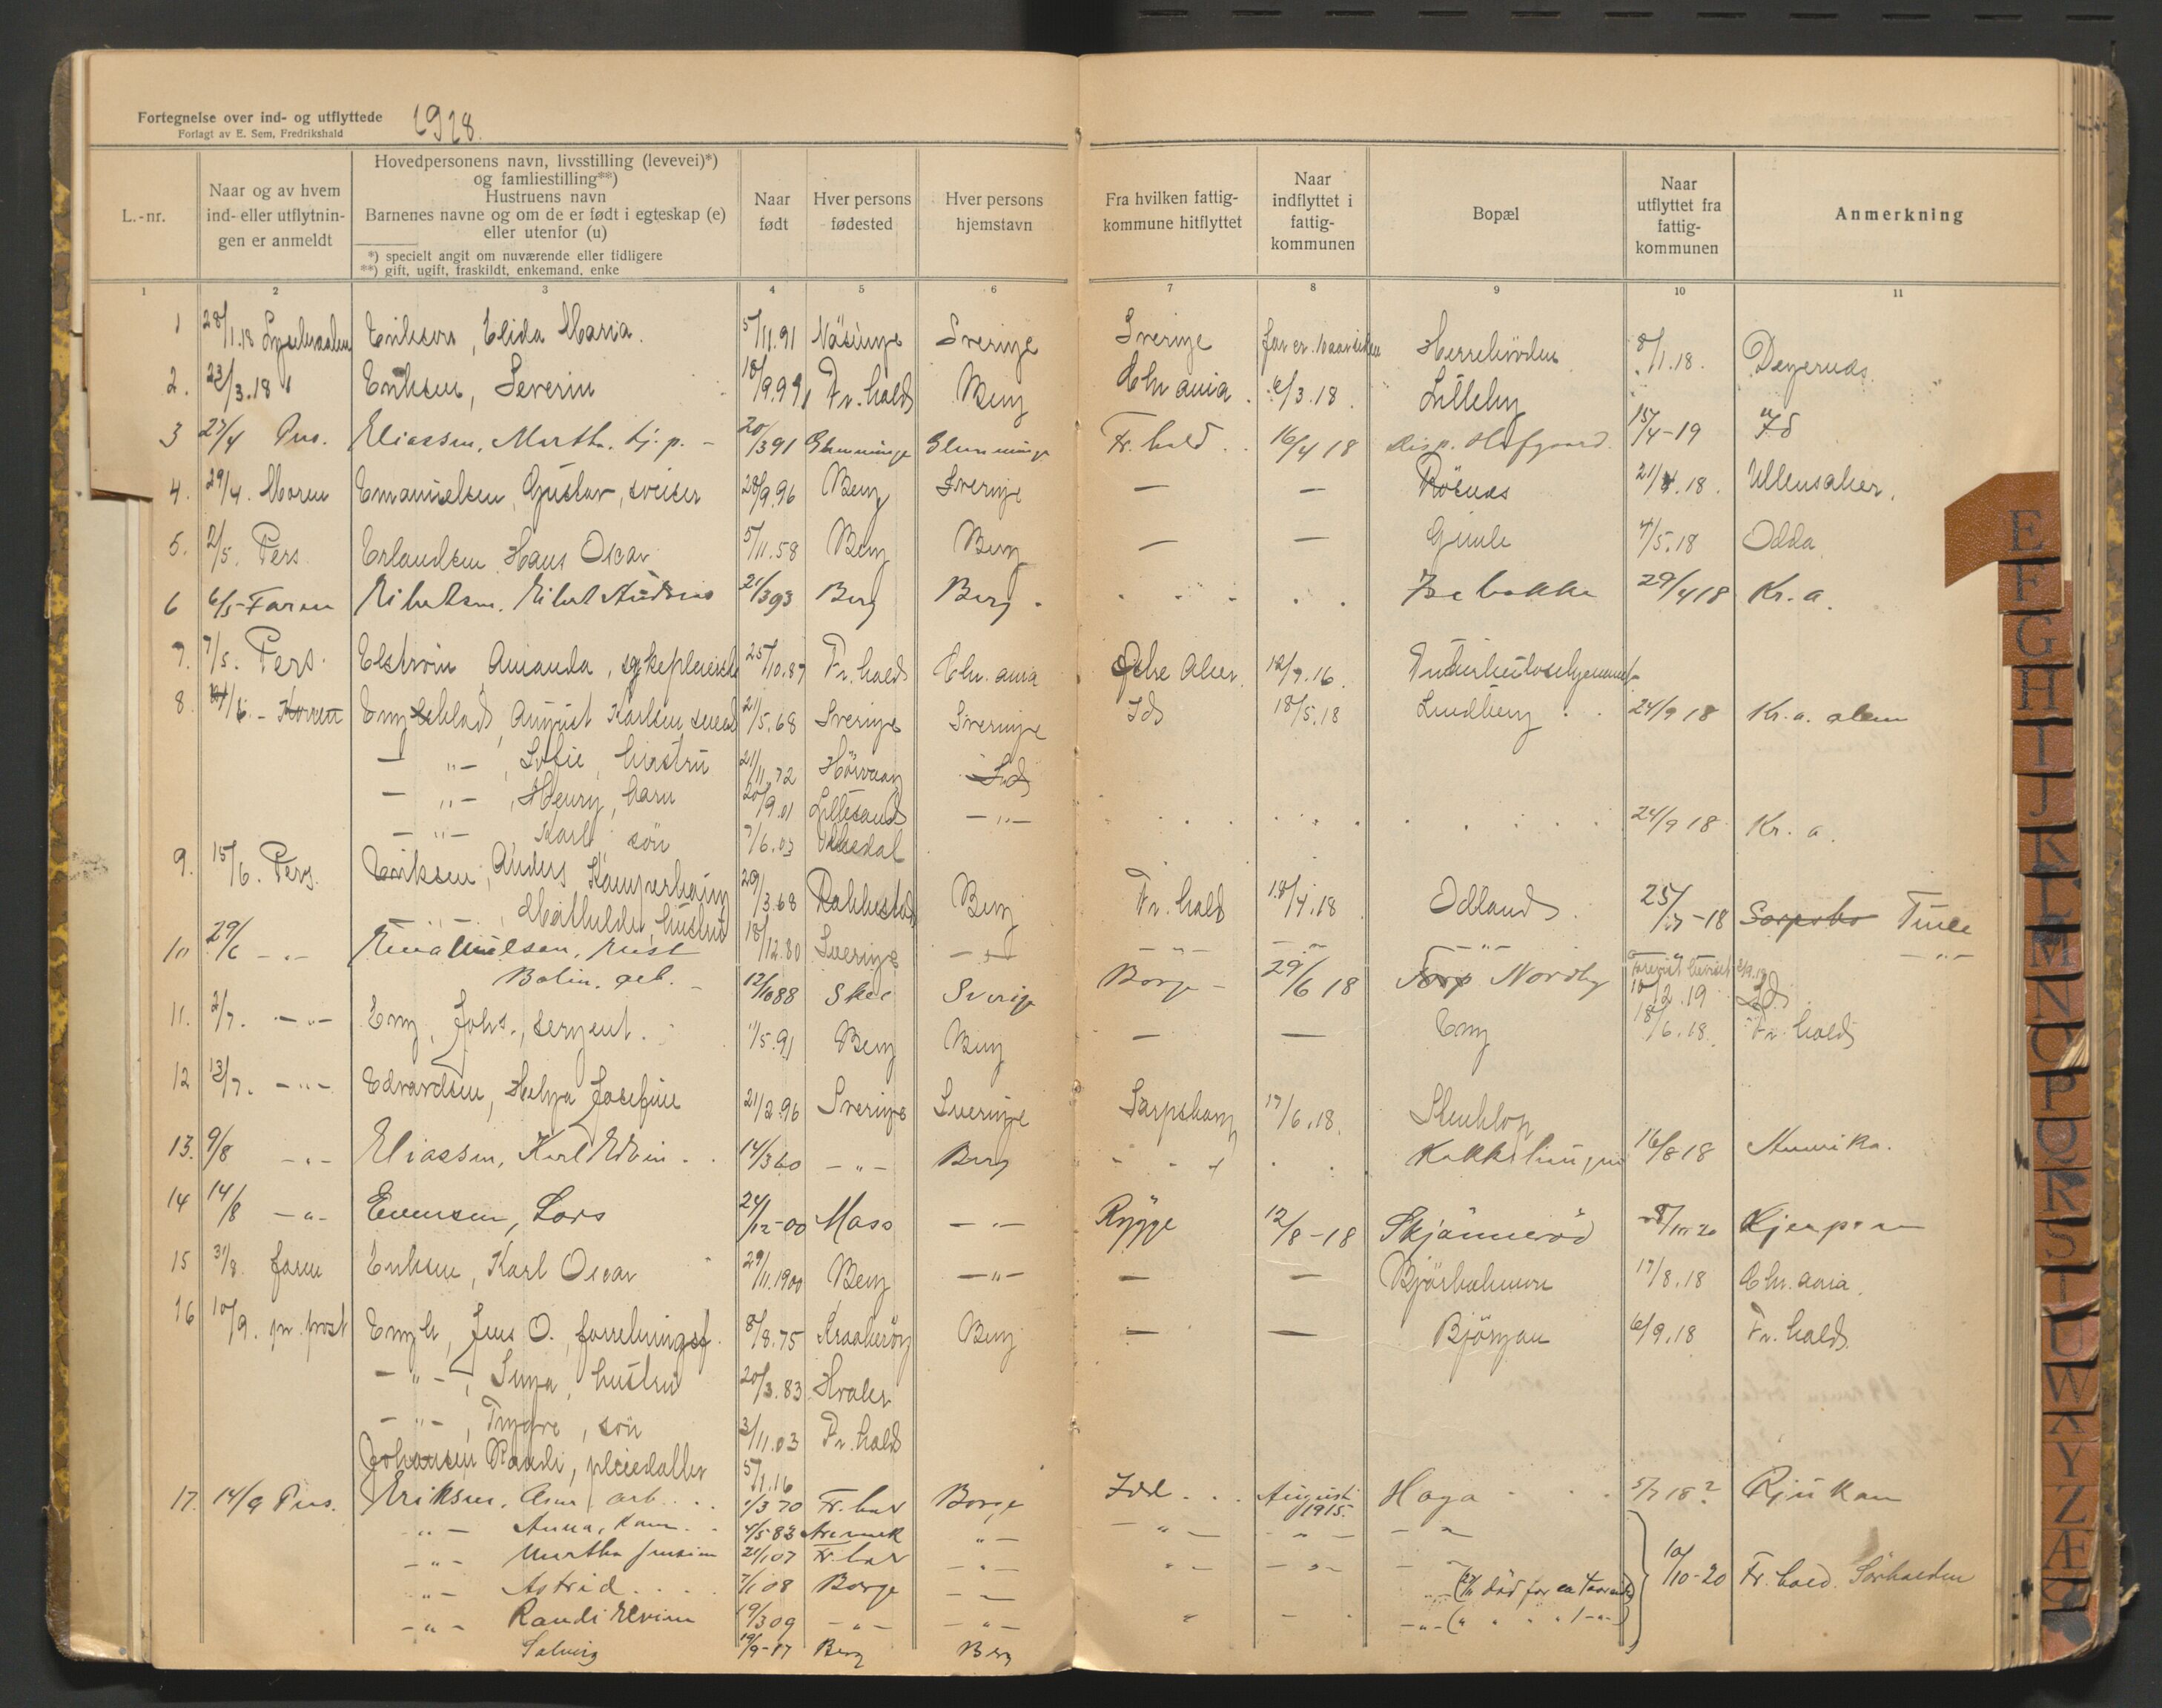 Fortegnelse over ind- og utflyttede
Forlagt av E. Sem, Fredrikshald
1918.
L.-nr.
Naar og av hvem ind- eller utflytnin- gen er anmeldt
Hovedpersonens navn, livsstilling (levevei)*)
og famliestilling**)
Hustruens navn
Barnenes navne og om de er født i egteskap (e)
eller utenfor (u)
*) specielt angit om nuværende eller tidligere
**) gift, ugift, fraskildt, enkemand, enke
Naar født
Hver persons fødested
Hver persons hjemstavn
Fra hvilken fattig- kommune hitflyttet
Naar indflyttet i fattig- kommunen
Bopæl
Naar utflyttet fra fattig- kommunen
Anmerkning
1 2 3 4 5 6 7 8 9 10 11
1 28/1.18 Erikson, Elida Maria. 5/11.91 Näsinge Sverige Sverige for en 8/1.18. Degernes
2. 23/3.18 Eriksen, Severin 18/9.99 Fr.hald Berg Chr.ania 6/3.18. Lilleby
3 27/4 Pers. Eliassen, Marth. tj.p. - 20/3 91 Glemminge Glemminge Fr.hald 16/4 18 disp. Hofgaard. 15/4-19 Id
4. 29/4. Moren Emanuelsen, Gustav, sveiser 28/9.96 Berg Sverige — — Rösnes 21/4.18. Ullensaker.
5. 2/5. Pers. Erlandsen Hans Oscar 5/11.58 Berg Berg — — Gimle 4/5.18 Odda
6 6/5 - Faren Eilertsen. Eilert Andreas 21/3 93 Berg Berg. Isebakke 29/4 18 Kr.a.
7. 7/5. Pers. Elström Amanda, sykepleierske 25/10.87 Fr.hald Chr.ania Østre Aker 12/9.16.
8. Engeblad, August Karlsen 21/5.68 Sverige Sverige Id 18/5.18 Lindberg 24/9 18 Kr.a.
— „ — , Sofie, hustru 21/11.72 Id
— „ — , Henry, barn 20/9.01 Lillesand — „ —
— „ — Karl sön 7/6.03 24/9 18 Kr.a.
9. 15/6. Pers. Eriksen, Anders Kamperhaug 29/3.68 Rakkestad Berg Fr.hald 18/4.18 Ödland 25/7-18 Sarpsbo Tune
— „ — , Mathilde, hustru 18/12.80 Sverige — „ — — „ — — „ — — „ —
10 29/6 - „ - Emanuelsen, Ernst
Bolin, geb. - 12/10 88 Skee Sverige Borge - 29/6 18 Torp Nordby 10/2.19 Id
11. 2/7. — „ — Eng, Johs., sergent. 1/5.91 Berg Berg — — Eng 18/6.18. Fr.hald
12 13/7. — „ — Edvardsen, Helga Josefine 21/2.96 Sverige Sverige Sarpsborg 17/6.18. Stenklop
13. 9/8 - „ - Eliassen, Karl Edvin. 14/3 60 - „ - Berg 16/8 18 Amerika.
14 14/8 — „ — Evensen, Lars 24/12-00 Moss — „ — Rygge 12/8-18 Skjönneröd Gjerpen
15 31/8. faren Eriksen, Karl Oscar 29/11.1900 Berg — „ — — — Björkholmen 17/8.18 Chr.ania.
16 10/9. pr. post Engh, Jens O., forretningsf. 8/8.75 Kraakeröy Berg — — Björgan 6/9.18 Fr.hald.
— „ — , Signa, hustru 20/3.83 Hvaler
— „ — , Trygve, sön 3/11.03 Fr.hald
Johansen Randi, pleiedatter 5/1.16
17. 14/9 Pers. Eriksen, arb. 1/3 70 Fr.hald Borge Idd August 1915. Haga 5/7 18? Rjukan
- „ - Anna, kone 4/5 83 Aremark - „ -
- „ - Martha Jensine 21/1 07 Fr.hald - „ -
- „ - Astrid 7/1 08 Borge 10/10-20 Fr.hald. Sörhalden
- „ - Randi Elvine 19/3 09 - „ - - „ -
Solveig 19/9-17 Berg Berg
E
F
G
H
I
J
K
L
M
N
O
P
Q
R
S
T
U
W
X
Y
Z
Æ
Ø